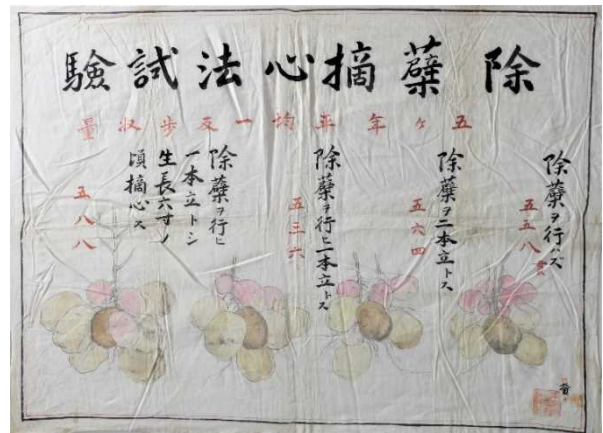 除蘖摘心法試驗
五ヶ年平均一反歩収量
除蘖ヲ行ハズ
五五八貫
除蘖ヲ二本立トス
五六四
除蘖ヲ行ヒ一本立トス
五三六
除蘖ヲ行ヒ
一本立トシ
生長六寸ノ
頃摘心ス
五八八